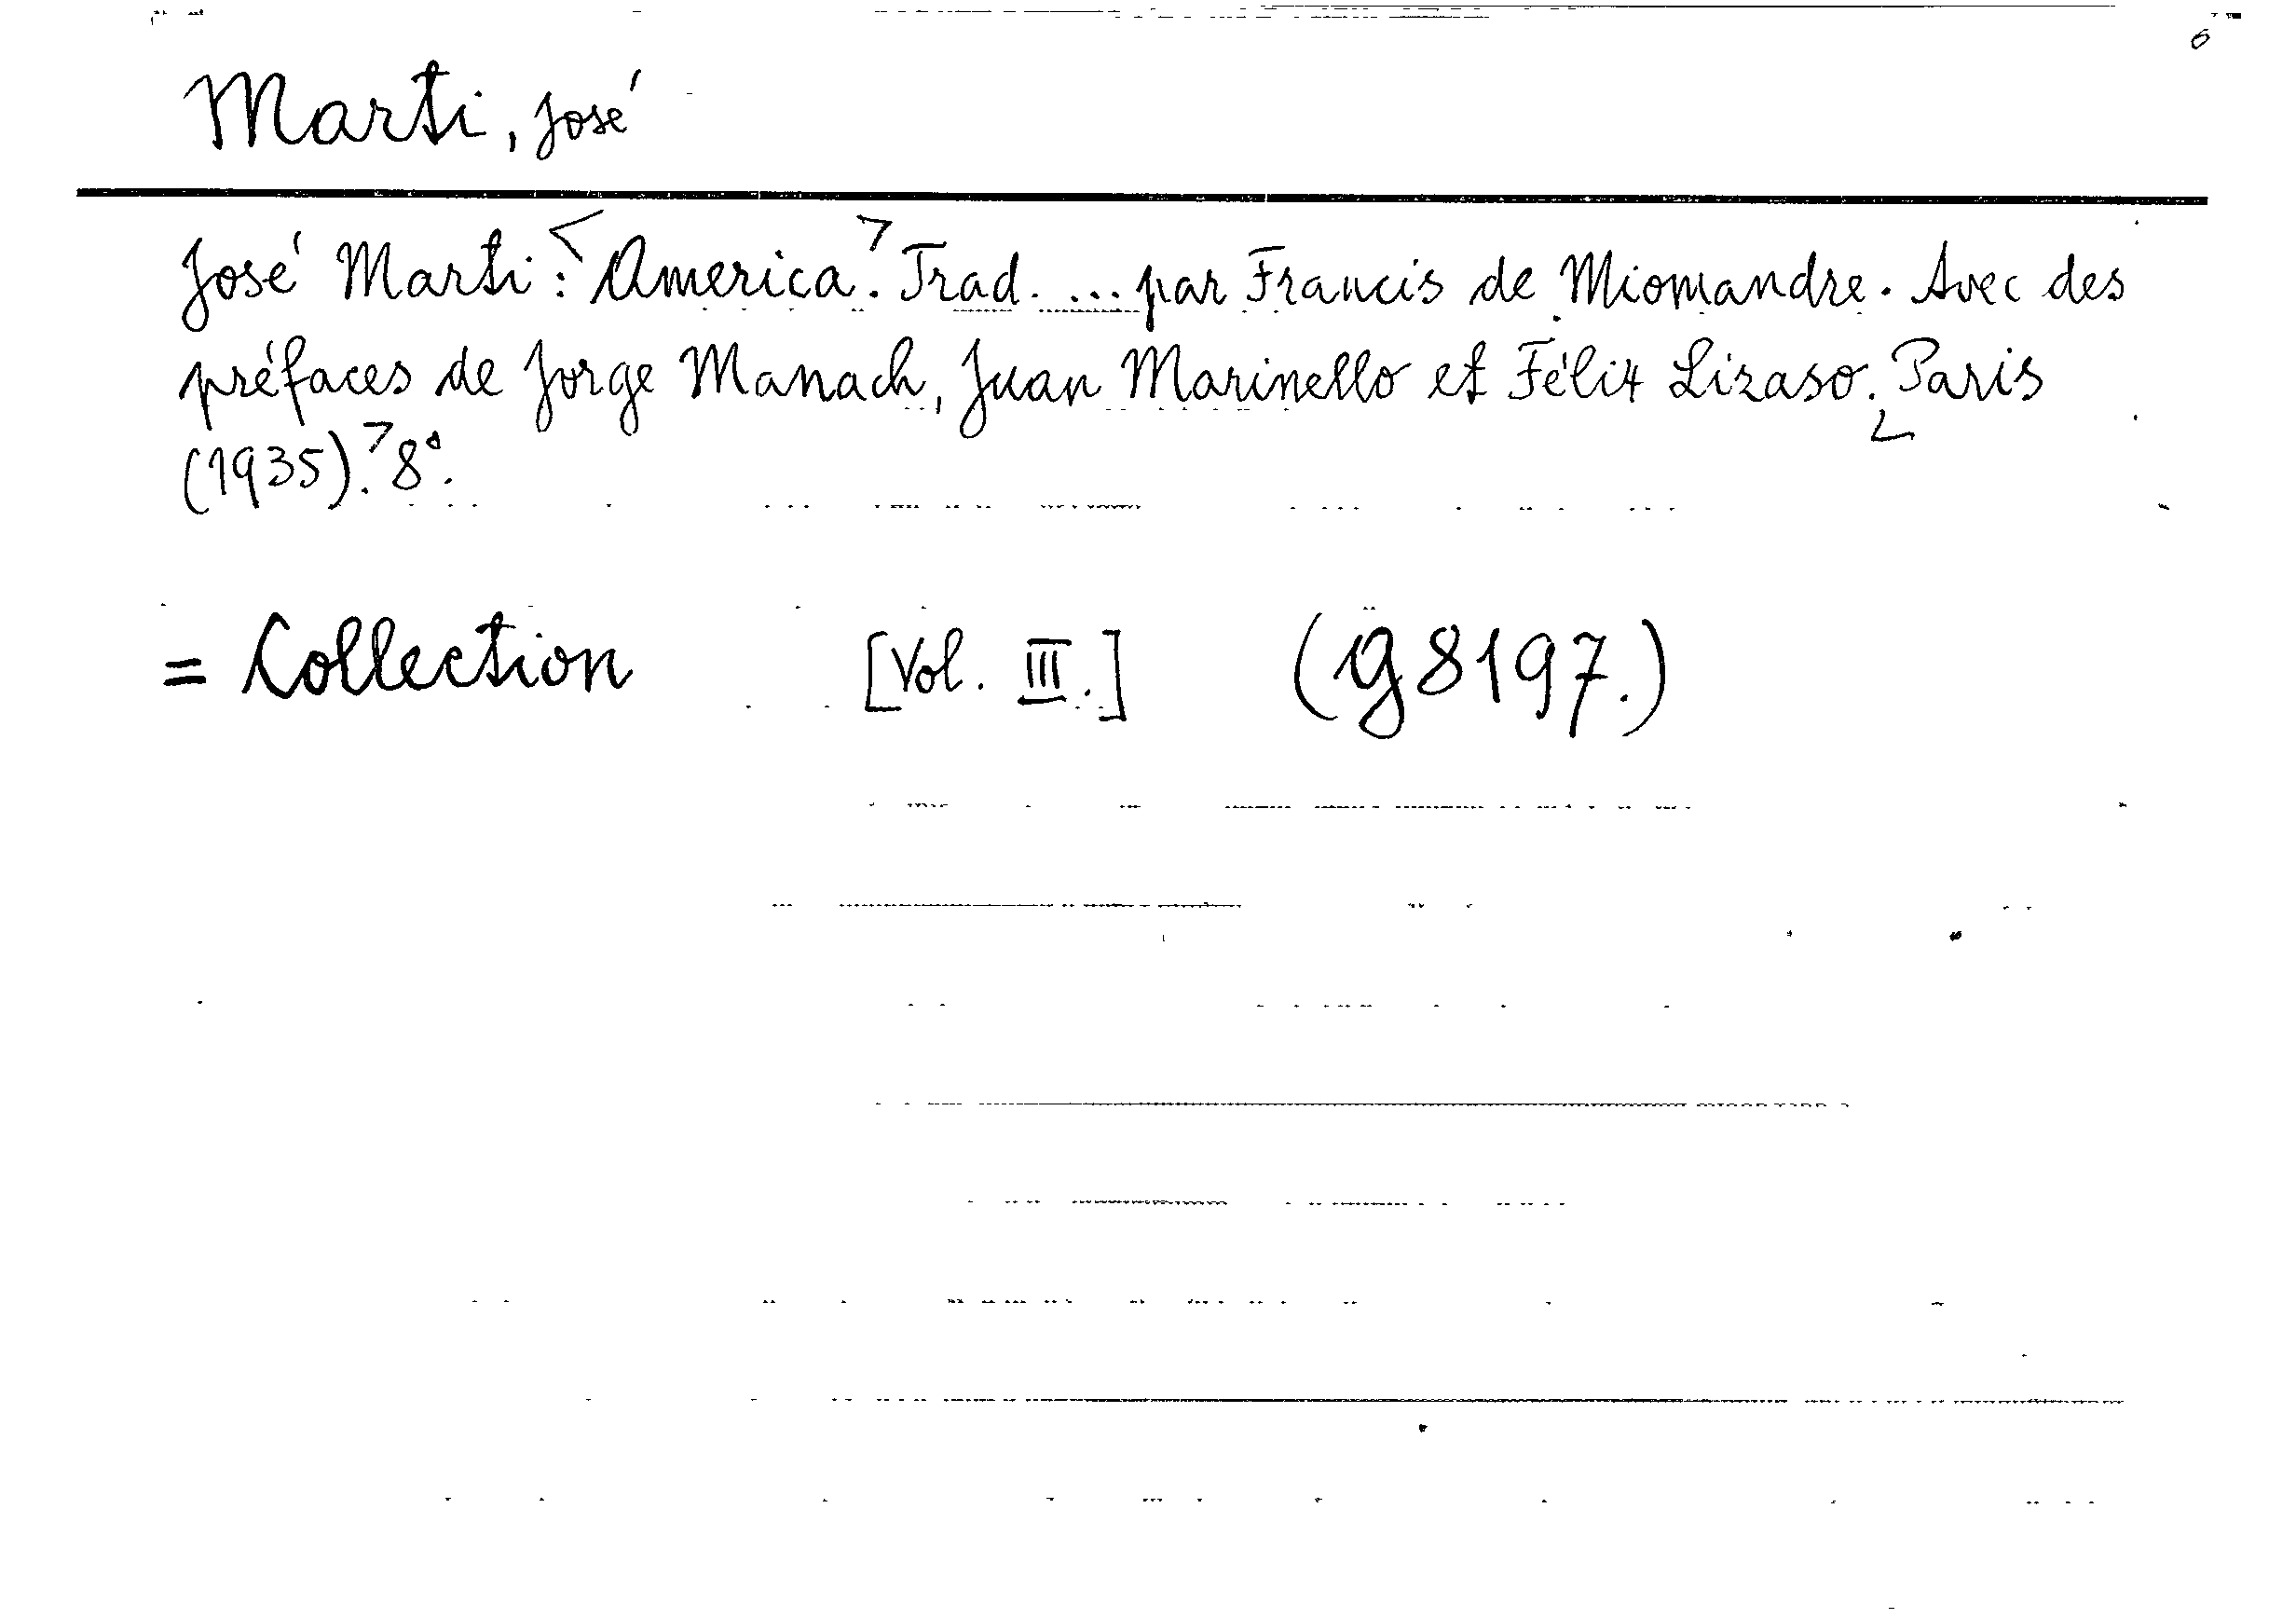 Marti, José
José Marti: <America.> Trad. ... par Francis de Miomandre. Avec des
préfaces de Jorge Manach, Juan Marinello et Félix Lizaso. <Paris
(1935).> 8°.
= Collection [Vol. III.] (g8197.)